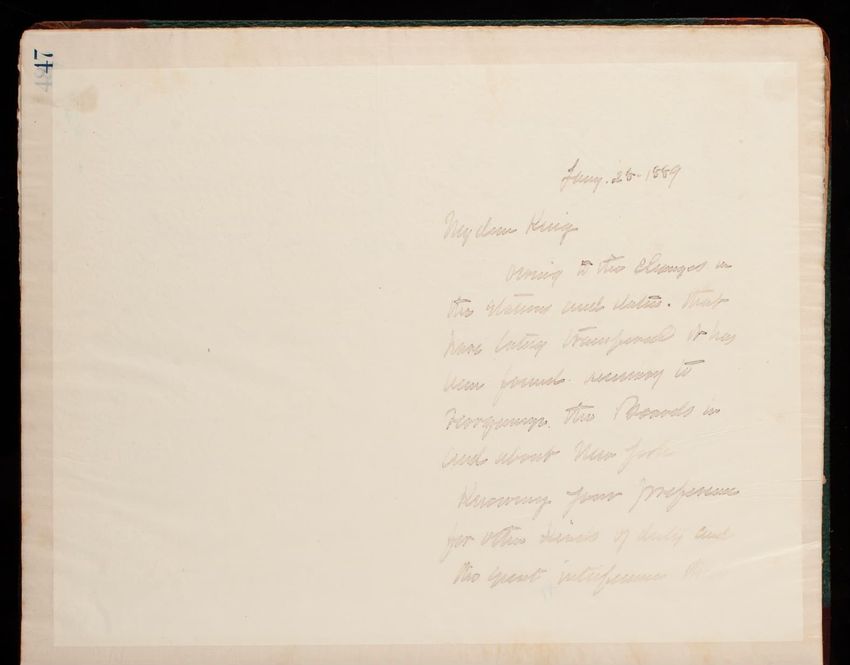 47
Jany. 28- 1889
My dear King
Owing to the changes in
the stations and duties. that
have lately transpired it has
been found necessary to
reorganize the Boards in
and about New York
Knowing your preference
for other kinds of duty and
the great interference